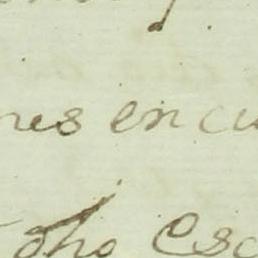 nes en cu
dho Esc